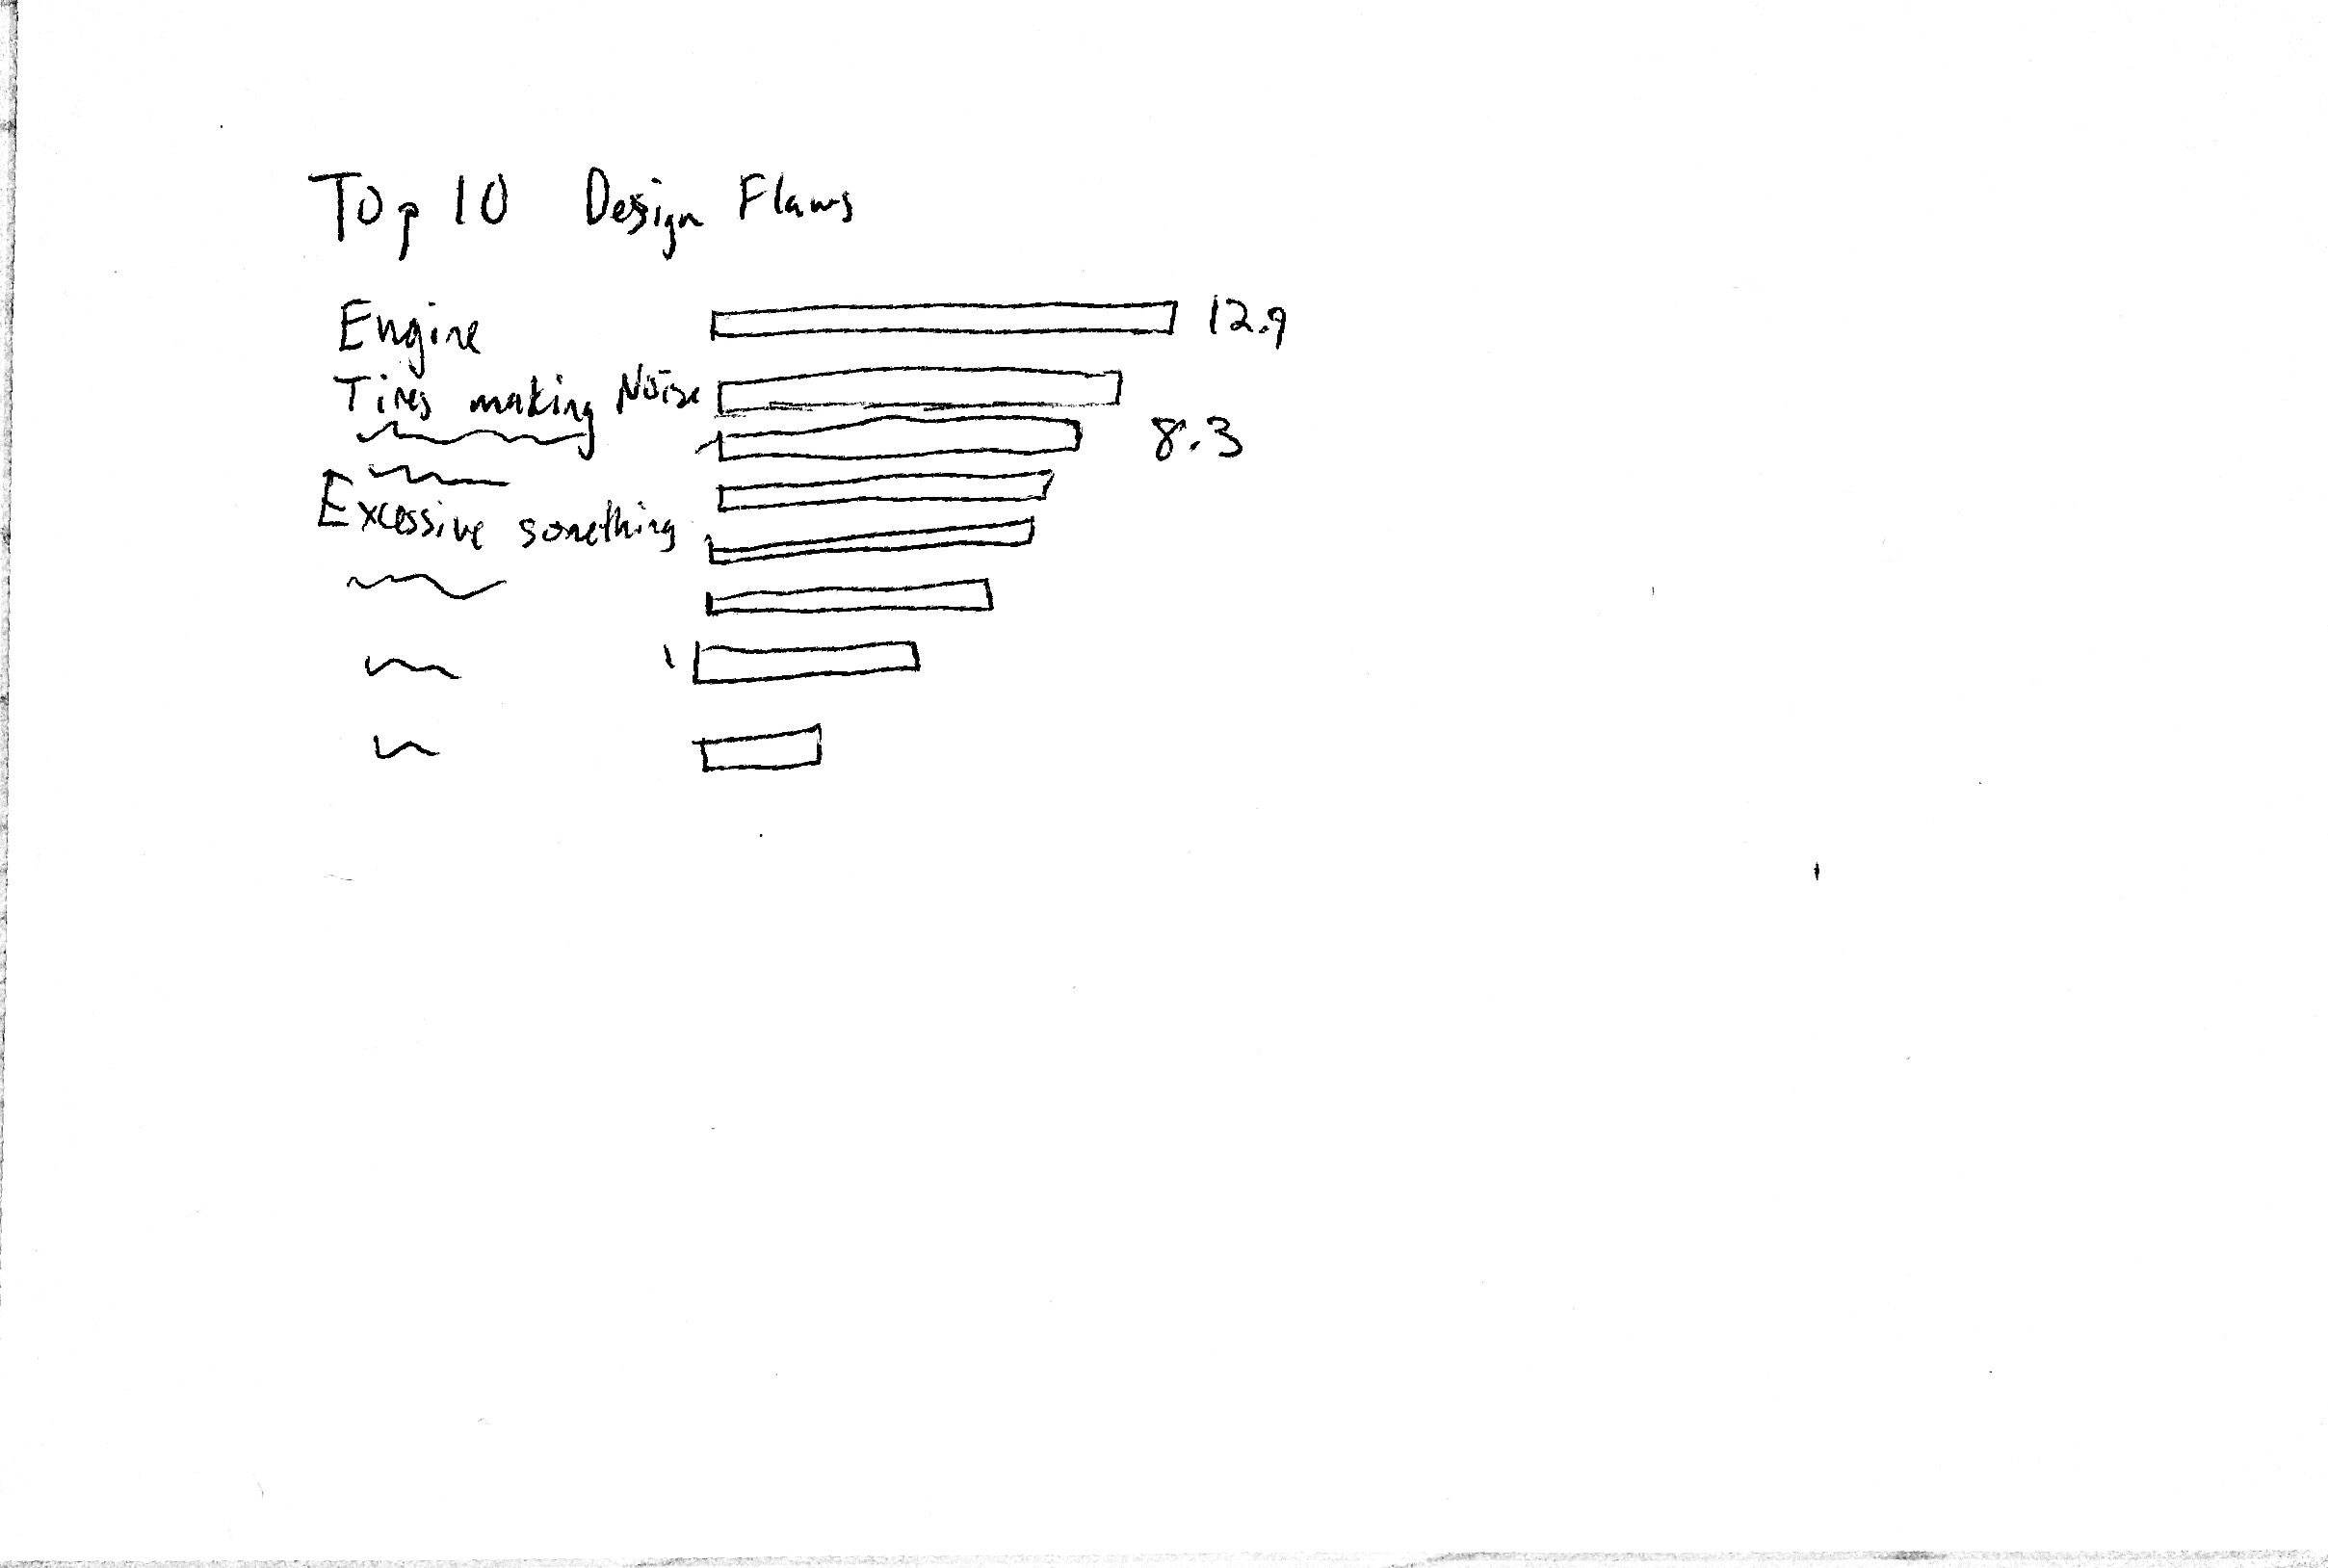 Top 10 Design Flaws
Engine 12.9
Tires making Noise
8.3
Excessive something